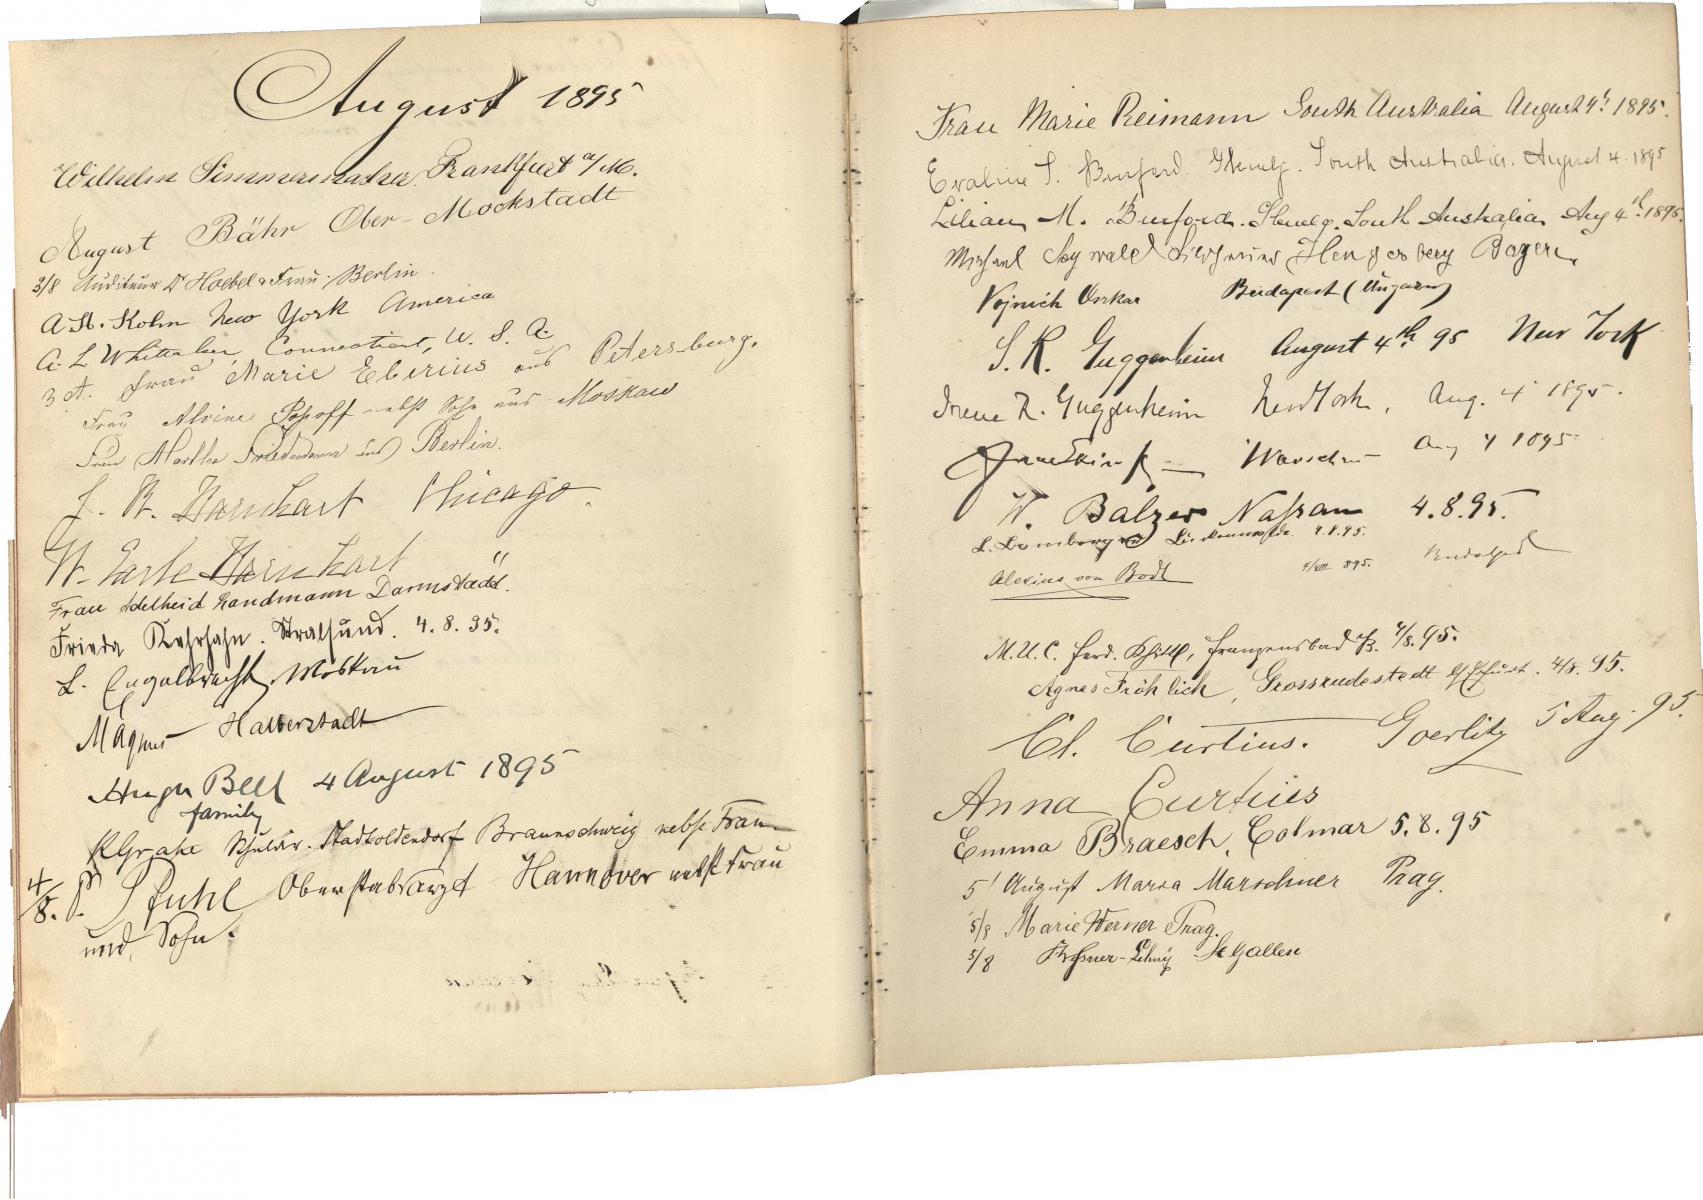 August 1895
Wilhelm Frankfurt a/M.
August Bähr Ober-Mockstadt
3/8 Auditeur Dr Hoebel & Frau Berlin.
A. St. Kohn New York America
A. L Whittaker, Connecticut, U. S. A.
3 A. Frau Marie Eberius aus Petersburg.
Frau Alvine Popoff nebst Sohn aus Moskau
Frau Martha aus Berlin.
J. W. Barnhart Chicago.
W. Earle Barnhart "
Frau Adelheid Landmann Darmstadt.
Frieda Kehrhahn. Stralsund. 4. 8. 95.
L. Engelbrecht, Moskau
Magnus Halberstadt
Hugh Bell 4 August 1895
family
K Grake Stadtoldendorf Braunschweig nebst Frau
4/8. P. Pfuhl Oberstabsarzt Hannover nebst Frau
und Sohn.
Frau Marie Reimann South Australia August 4th 1895.
Evaline S. Burford. Glenelg. South Australia. August 4. 1895
Lilian M. Burford. Glenelg. South Australia Aug 4th 1895.
Michael Bildhauer Hengersberg Bayern
Vojnich Oskar Budapest (Ungarn)
S. R. Guggenheim August 4th 95 New York
Irene R. Guggenheim New York, Aug. 4 1895.
Warschau Aug 4 1895
W. Balzer Nassau 4. 8. 95.
L. Luckenwalde 4. 8. 95.
Alexius von Bodt 4/VIII 895. Budapest
M. U. C. Ferd. Franzensbad 4/8. 95.
Agnes Fröhlich, Grossrudestedt b/Erfurt. 4/8. 95.
Cl. Curtius. Goerlitz 5 Aug. 95.
Anna Curtius
Emma Braesch, Colmar 5. 8. 95
5 August Maria Marschner Prag.
5/8 Marie Werner Prag.
5/8 St Gallen